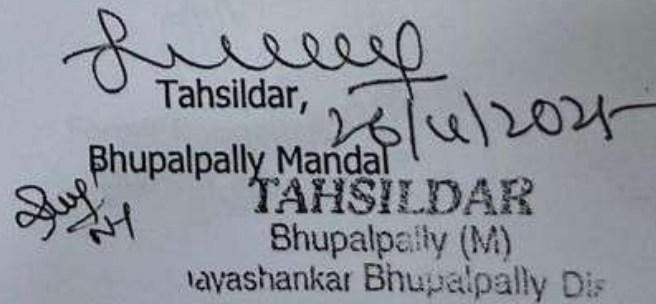 Tahsildar,
Bhupalpally Mandal
TAHSILDAR
Bhupalpally (M)
Jayashankar Bhupalpally Dis